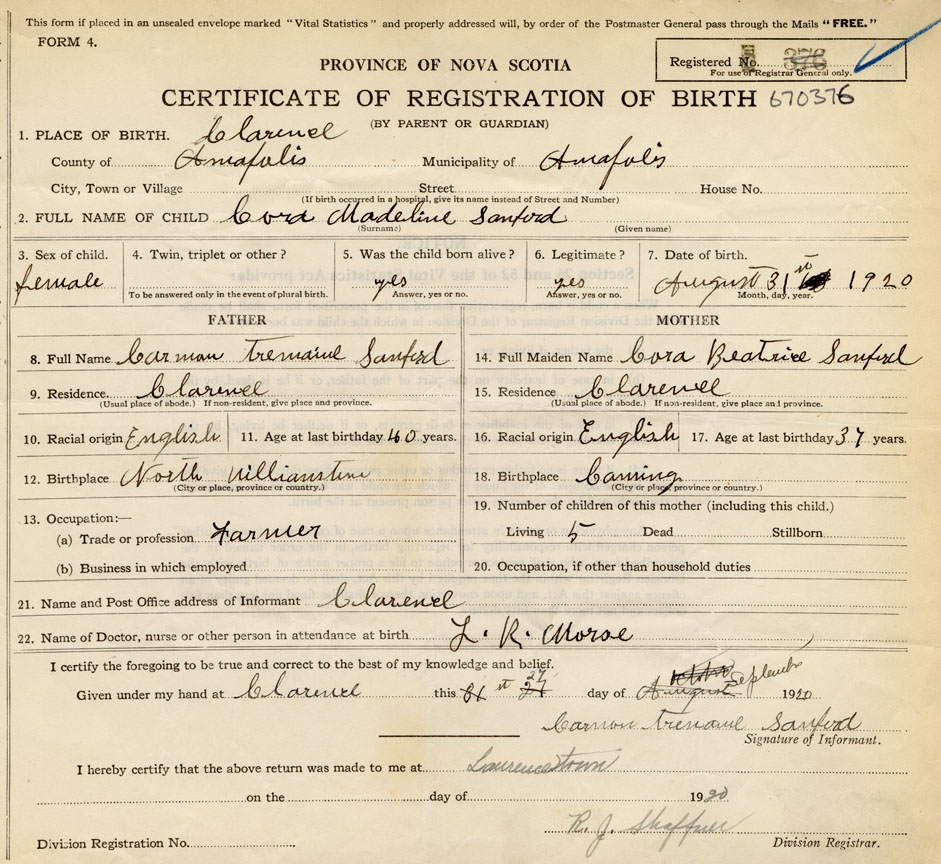 This form if placed in an unsealed envelope marked "Vital Statistics" and properly addressed will, by order of the Postmaster General pass through the Mails "FREE."
FORM 4.
Registered No. 376
For use of Registrar General only.
PROVINCE OF NOVA SCOTIA
CERTIFICATE OF REGISTRATION OF BIRTH 670376
(BY PARENT OR GUARDIAN)
1. PLACE OF BIRTH. Clarence
County of Annapolis Municipality of Annapolis
City, Town or Village Street House No.
(If birth occurred in a hospital, give its name instead of Street and Number)
2. FULL NAME OF CHILD Cora Madeline Sanford
(Surname) (Given name)
3. Sex of child. 4. Twin, triplet or other? 5. Was the child born alive? 6. Legitimate? 7. Date of birth.
female yes yes August 31st 1920
To be answered only in the event of plural birth. Answer, yes or no. Answer, yes or no. Month, day, year.
FATHER MOTHER
8. Full Name Carman Tremaine Sanford 14. Full Maiden Name Cora Beatrice Sanford
9. Residence. Clarence 15. Residence Clarence
(Usual place of abode.) If non-resident, give place and province. (Usual place of abode.) If non-resident, give place and province.
10. Racial origin English 11. Age at last birthday 40 years. 16. Racial origin English 17. Age at last birthday 37 years.
12. Birthplace North Williamston 18. Birthplace Canning
(City or place, province or country.) (City or place, province or country.)
13. Occupation:— 19. Number of children of this mother (including this child.)
(a) Trade or profession Farmer Living 5 Dead Stillborn
(b) Business in which employed 20. Occupation, if other than household duties
21. Name and Post Office address of Informant Clarence
22. Name of Doctor, nurse or other person in attendance at birth L. R. Morse
I certify the foregoing to be true and correct to the best of my knowledge and belief.
Given under my hand at Clarence this 31st 27 day of August September 1920
Carman Tremaine Sanford
Signature of Informant.
I hereby certify that the above return was made to me at Lawrencetown
on the day of 1920
R. J. Shaffner
Division Registration No. Division Registrar.